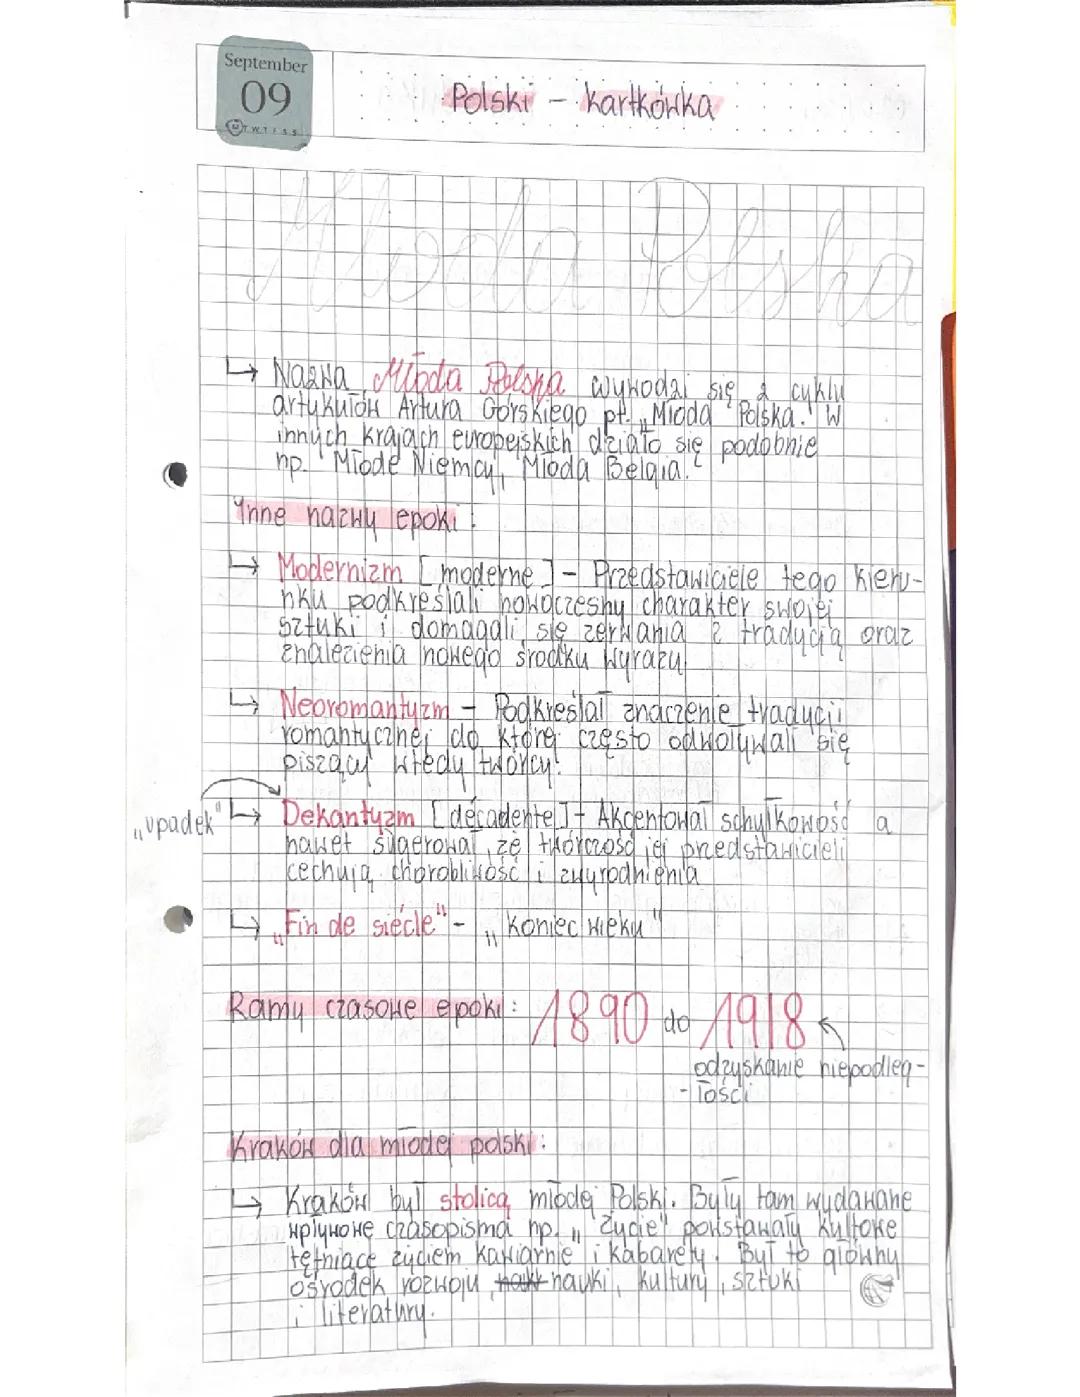 September
09
M T W T F S S
Polski - kartkówka
Młoda Polska
↳ Nazwa Młoda Polska wywodzi się z cyklu
artykułów Artura Górskiego pt. „Młoda Polska." W
innych krajach europejskich działo się podobnie
np. Młode Niemcy, Młoda Belgia.
Inne nazwy epoki:
↳ Modernizm [moderne] - Przedstawiciele tego kieru-
nku podkreślali nowoczesny charakter swojej
sztuki i domagali się zerwania z tradycją oraz
znalezienia nowego środku wyrazu
↳ Neoromantyzm - Podkreślał znaczenie tradycji
romantycznej do której często odwoływali się
piszący wtedy twórcy.
„upadek" ↳ Dekantyzm [décadente] - Akcentował schyłkowość a
nawet sugerował, że twórczość jej przedstawicieli
cechują chorobliwość i zwyrodnienia
↳ „Fin de siécle" - „koniec wieku"
Ramy czasowe epoki: 1890 do 1918
odzyskanie niepodleg-
-łości
Kraków dla młodej polski:
↳ Kraków był stolicą młodej Polski. Były tam wydawane
wpływowe czasopisma np. „Życie" powstawały kultowe
tętniące życiem kawiarnie i kabarety. Był to główny
ośrodek rozwoju nauki, kultury, sztuki
i literatury.